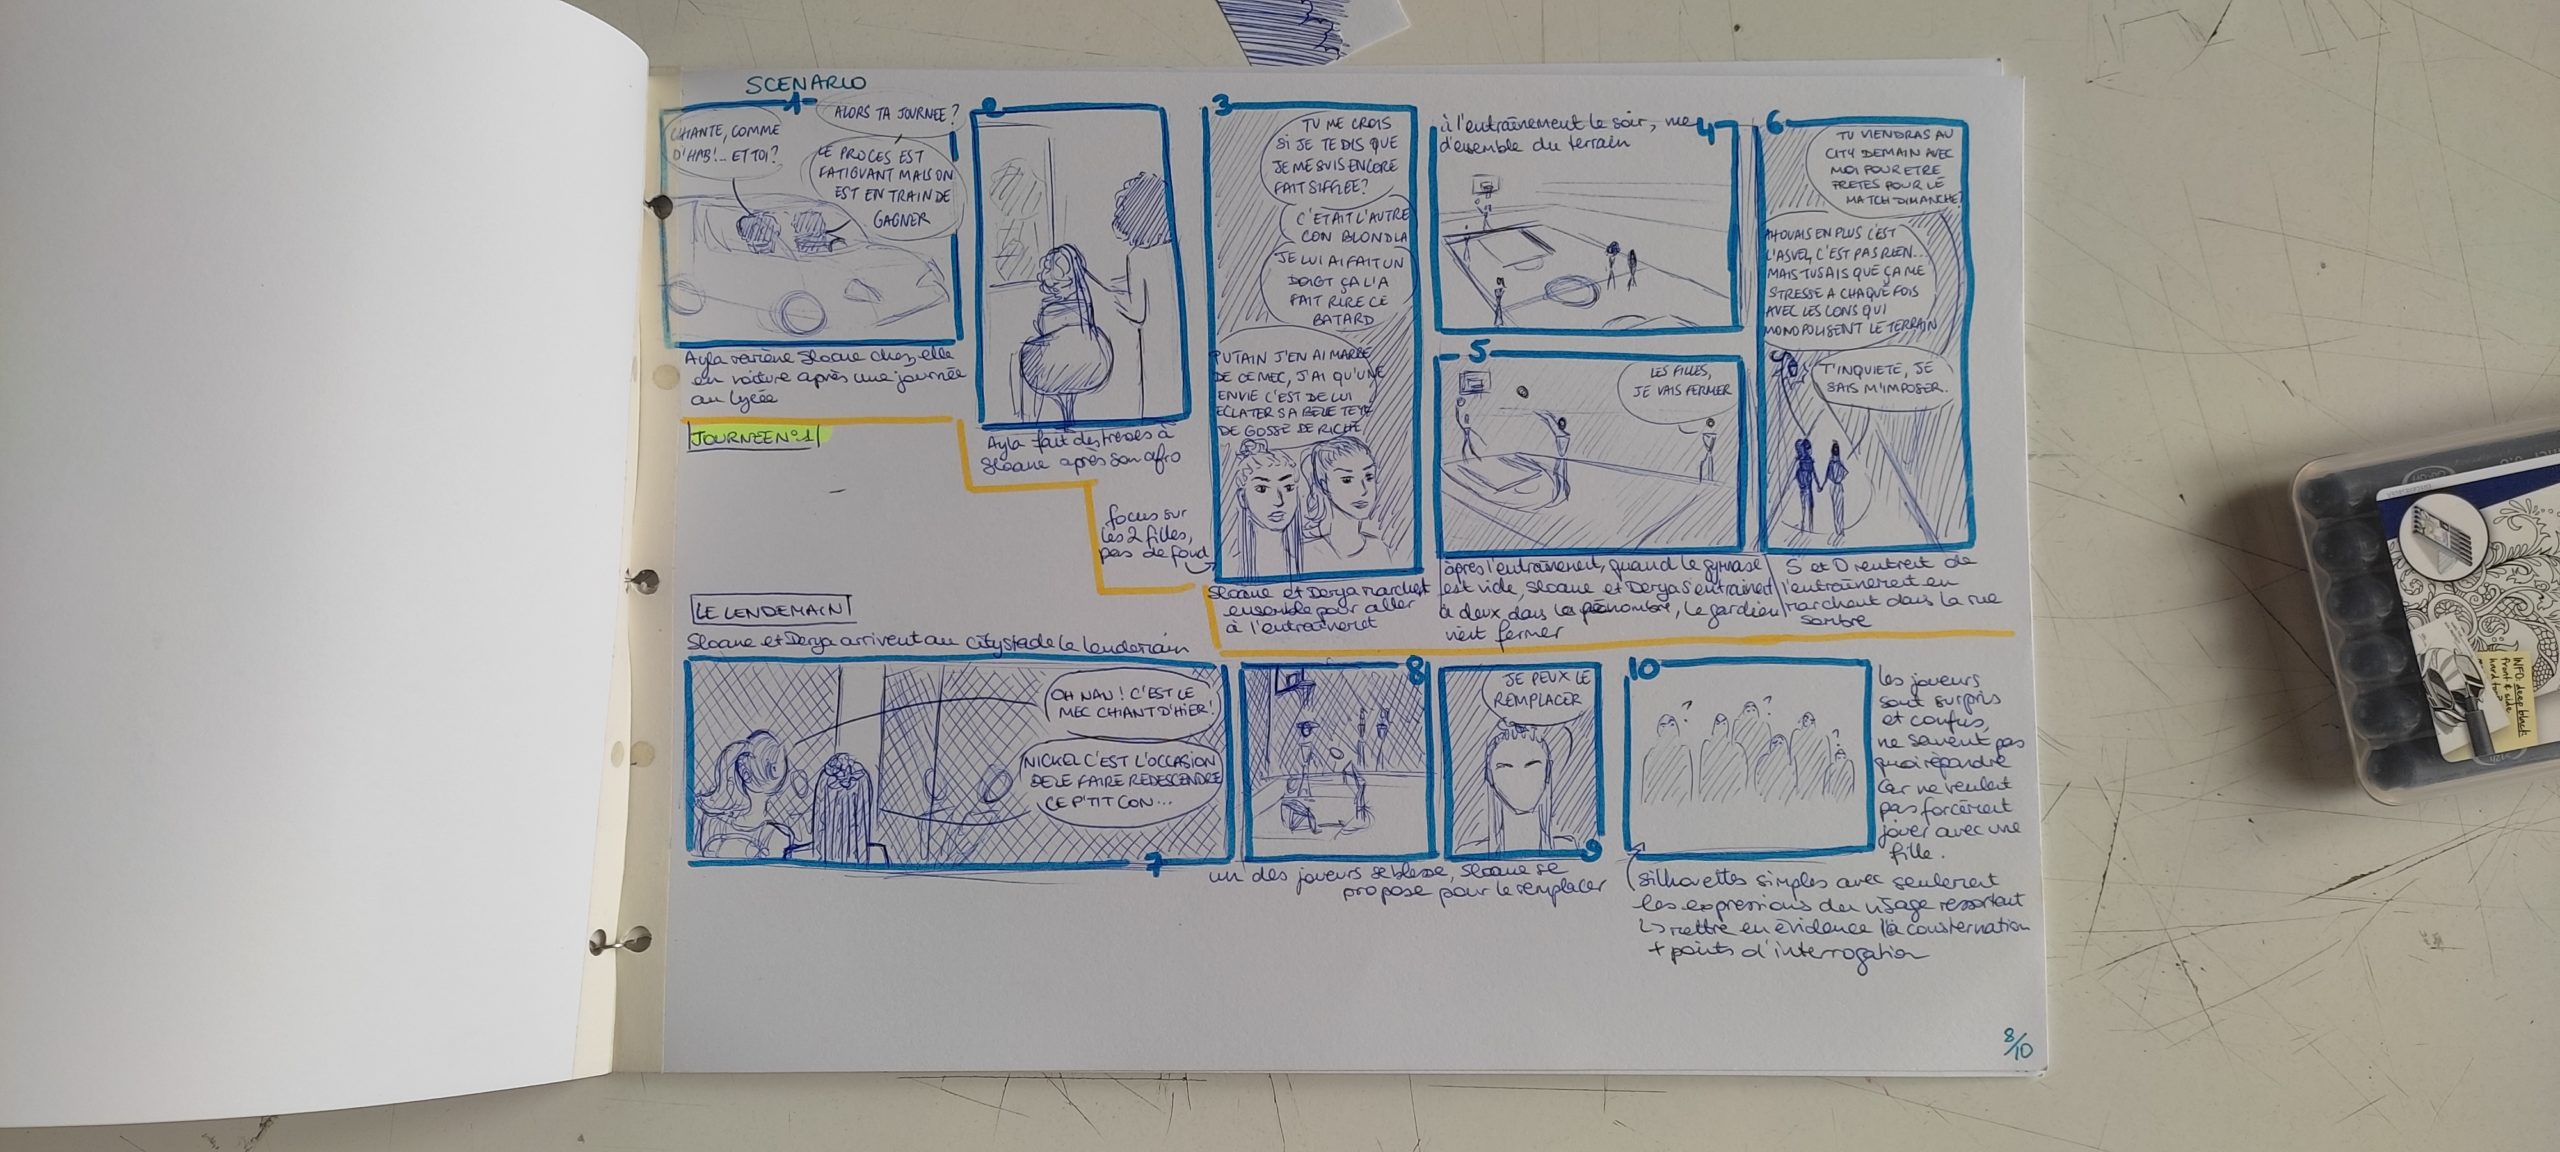 SCENARIO
1
ALORS TA JOURNEE?
CHIANTE, COMME
D'HAB!... ET TOI?
LE PROCES EST
FATIGUANT MAIS ON
EST EN TRAIN DE
GAGNER
Ayla ramène Sloane chez elle
en voiture après une journée
au lycée
JOURNEE N°1
2
Ayla fait des tresses à
Sloane après son afro
3
TU ME CROIS
SI JE TE DIS QUE
JE ME SUIS ENCORE
FAIT SIFFLEE?
C'ETAIT L'AUTRE
CON BLOND LA
JE LUI AI FAIT UN
DOIGT ÇA L'A
FAIT RIRE CE
BATARD
PUTAIN J'EN AI MARRE
DE CE MEC, J'AI QU'UNE
ENVIE C'EST DE LUI
ECLATER SA BELLE TETE
DE GOSSE DE RICHE
focus sur
les 2 filles,
pas de fond
Sloane et Derya marchent
ensemble pour aller
à l'entraînemet
à l'entraînement le soir, vue
d'ensemble du terrain
4
5
LES FILLES,
JE VAIS FERMER
après l'entraînement, quand le gymnase
est vide, Sloane et Derya s'entrainent
à deux dans la pénombre, le gardien
vient fermer
6
TU VIENDRAS AU
CITY DEMAIN AVEC
MOI POUR ETRE
PRETES POUR LE
MATCH DIMANCHE?
AH OUAIS EN PLUS C'EST
L'ASVEL, C'EST PAS RIEN...
MAIS TU SAIS QUE ÇA ME
STRESSE A CHAQUE FOIS
AVEC LES CONS QUI
MONOPOLISENT LE TERRAIN
T'INQUIETE, JE
SAIS M'IMPOSER.
S et D rentrent de
l'entraînement en
marchant dans la rue
sombre
LE LENDEMAIN
Sloane et Derya arrivent au citystade le lendemain
OH NAN! C'EST LE
MEC CHIANT D'HIER!
NICKEL C'EST L'OCCASION
DE LE FAIRE REDESCENDRE
CE P'TIT CON...
7
8
JE PEUX LE
REMPLACER
9
un des joueurs se blesse, Sloane se
propose pour le remplacer
10
? ? ?
les joueurs
sont surpris
et confus,
ne savent pas
quoi répondre
car ne veulent
pas forcément
jouer avec une
fille.
silhouettes simples avec seulement
les expressions du visage ressortant
↳ mettre en évidence la consternation
+ points d'interrogation
8/10
INFO: deep black